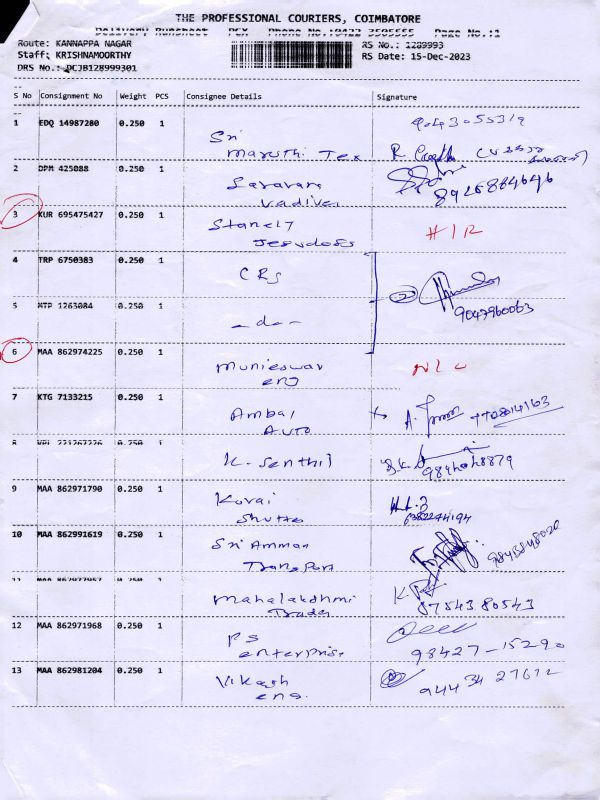 THE PROFESSIONAL COURIERS, COIMBATORE
Delivery Runsheet PCX Phone No.:0422 3505555 Page No.:1
Route: KANNAPPA NAGAR RS No.: 1289993
Staff: KRISHNAMOORTHY RS Date: 15-Dec-2023
DRS No.: DCJB128999301
S No Consignment No Weight PCS Consignee Details Signature
1 EDQ 14987280 0.250 1
Sri
Maruthi Tex
2 DPM 425088 0.250 1
Saravana
Vadivel 8926884646
3 KUR 695475427 0.250 1
Stanely
Jesudoss
4 TRP 6750383 0.250 1
CRS
9047960063
5 MTP 1263084 0.250 1
- do -
6 MAA 862974225 0.250 1
Munieswar
eng
7 KTG 7133215 0.250 1
Ambal
Auto
8 0.250 1
K. Senthil
9 MAA 862971790 0.250 1
Kovai
Shutts
10 MAA 862991619 0.250 1
Sri Amman
Transport
11 MAA 0.250 1
Mahalakshmi
Trades 8754380543
12 MAA 862971968 0.250 1
PS
enterprise 98427-15290
13 MAA 862981204 0.250 1
Vikash
eng. 9444 34 27672